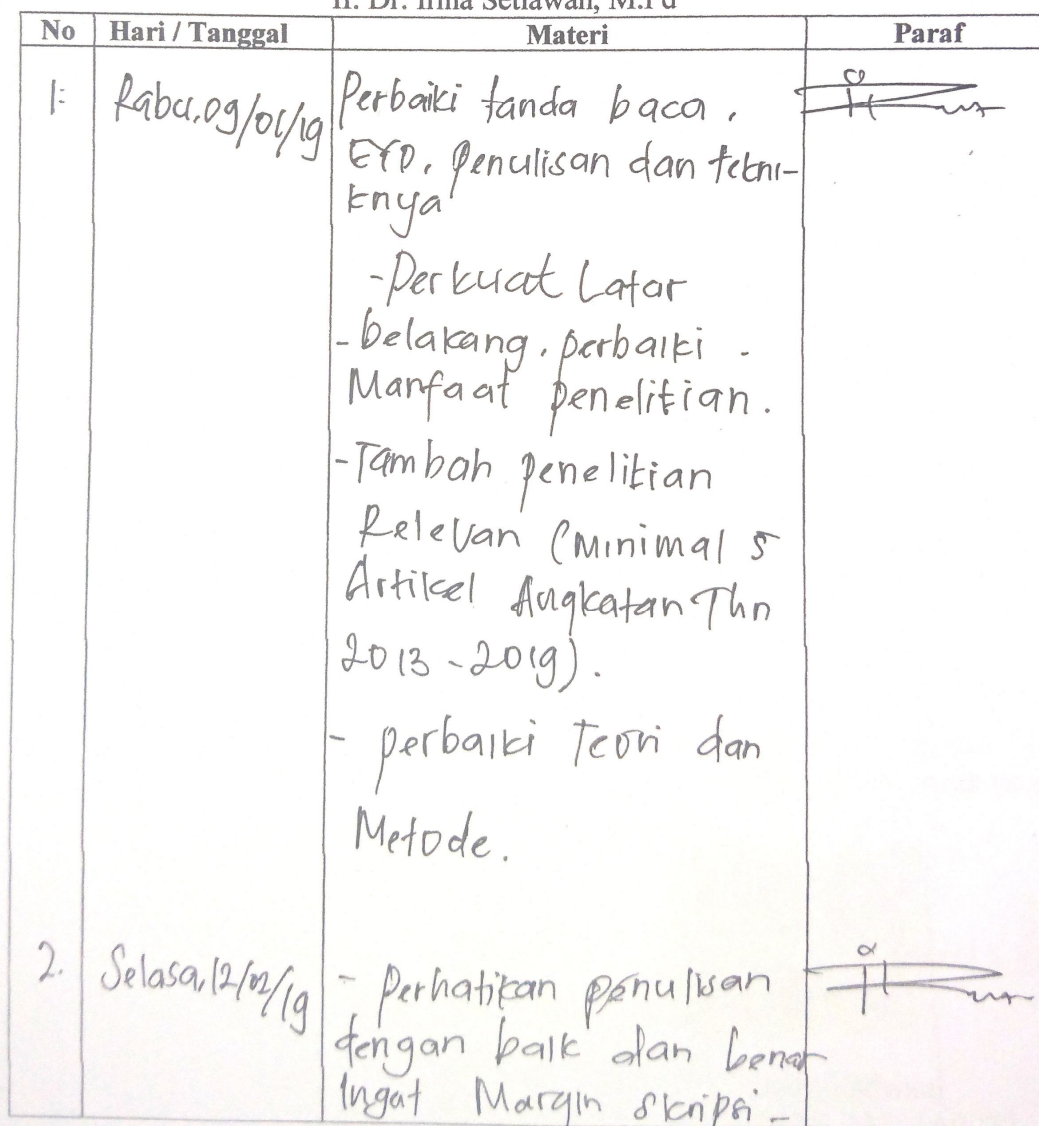 II. Dr. Irma Setiawan, M.Pd
No Hari / Tanggal Materi Paraf
1. Rabu, 09/01/19 Perbaiki tanda baca,
EYD, Penulisan dan tekni-
knya
- Perkuat Latar
- belakang, perbaiki -
Manfaat penelitian.
- Tambah penelitian
Relevan (Minimal 5
Artikel Angkatan Thn
2013 - 2019).
- perbaiki Teori dan
Metode.
2. Selasa, 12/02/19 - Perhatikan penulisan
dengan baik dan benar
Ingat Margin skripsi -